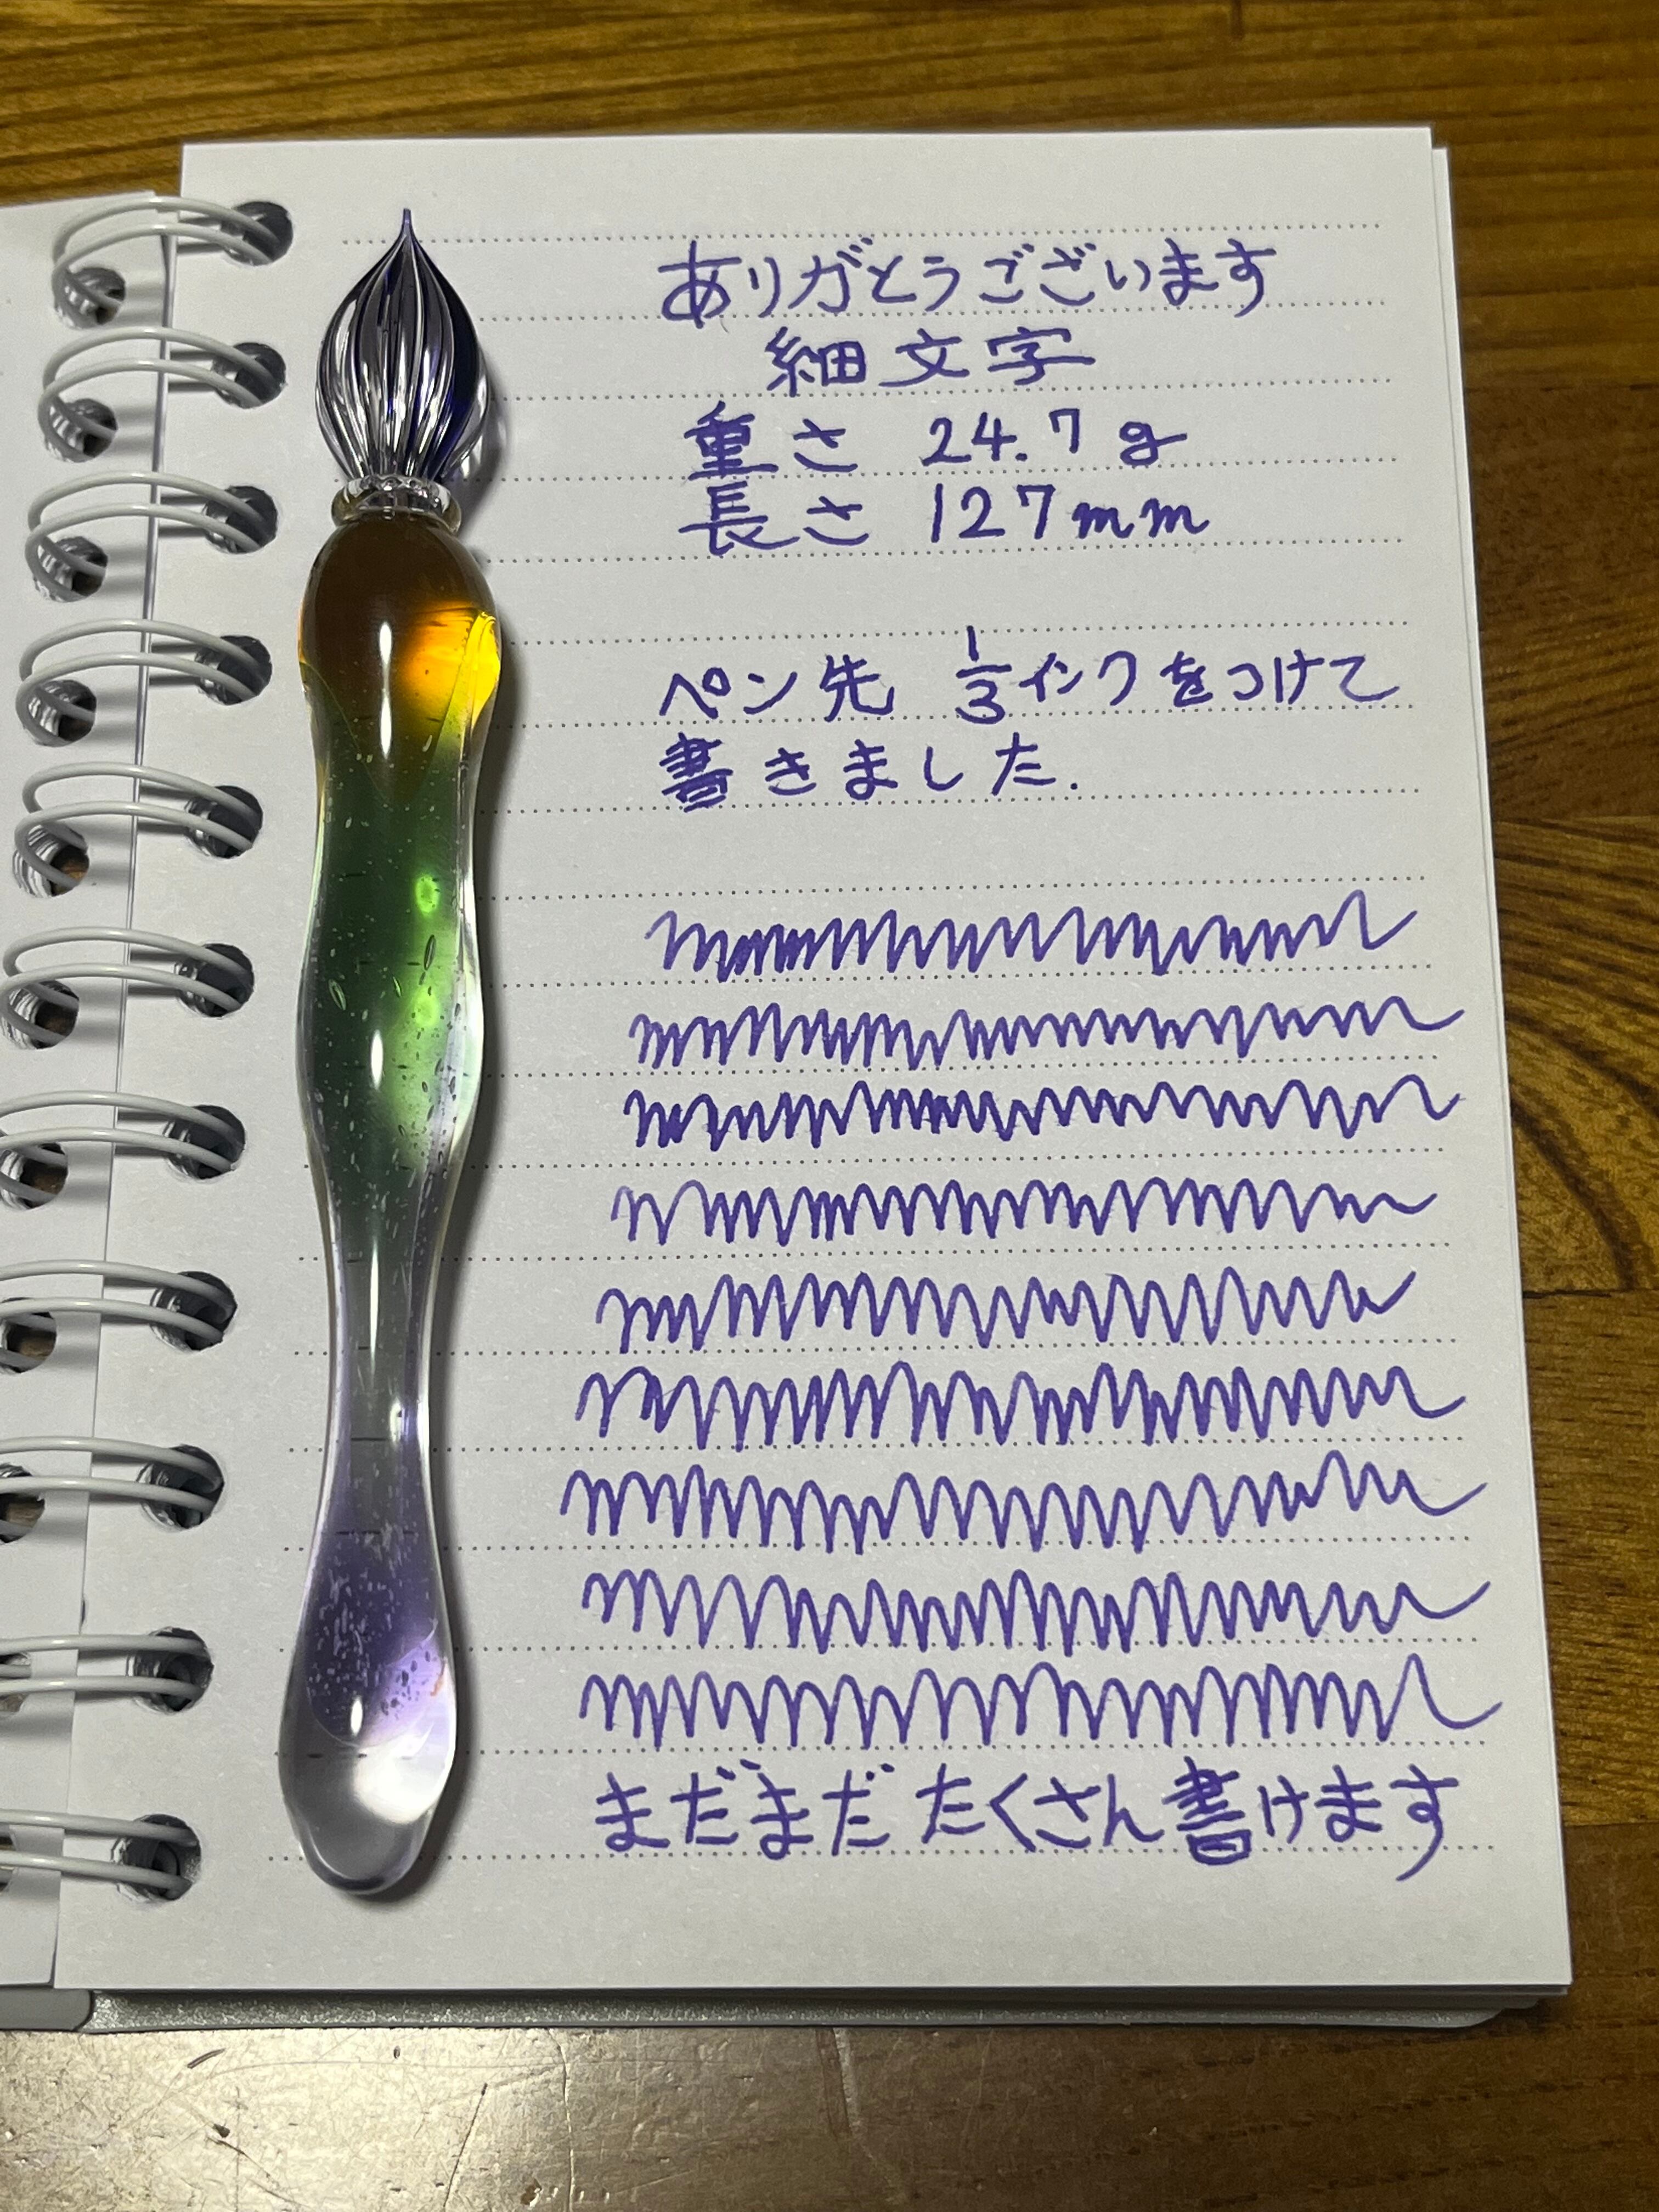 ありがとうございます
細文字
重さ 24.7g
長さ 127mm
ペン先 1/3インクをつけて
書きました.
まだまだたくさん書けます